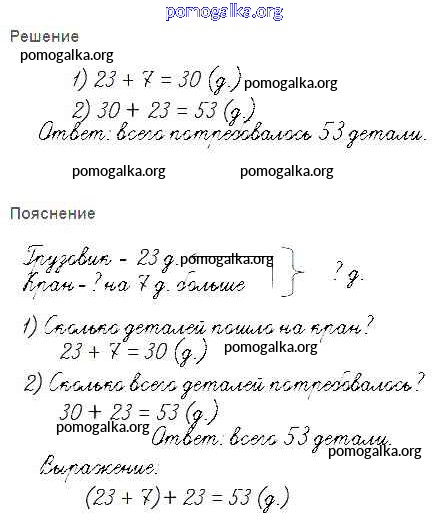 pomogalka.org
Решение
pomogalka.org
1) 23 + 7 = 30 (д.) pomogalka.org
2) 30 + 23 = 53 (д.)
Ответ: всего потребовалось 53 детали.
pomogalka.org pomogalka.org
Пояснение
Грузовик - 23 д. pomogalka.org
Кран - ? на 7 д. больше } ? д.
1) Сколько деталей пошло на кран?
23 + 7 = 30 (д.) pomogalka.org
2) Сколько всего деталей потребовалось?
30 + 23 = 53 (д.)
pomogalka.org Ответ: всего 53 детали.
pomogalka.org
Выражение:
(23 + 7) + 23 = 53 (д.)